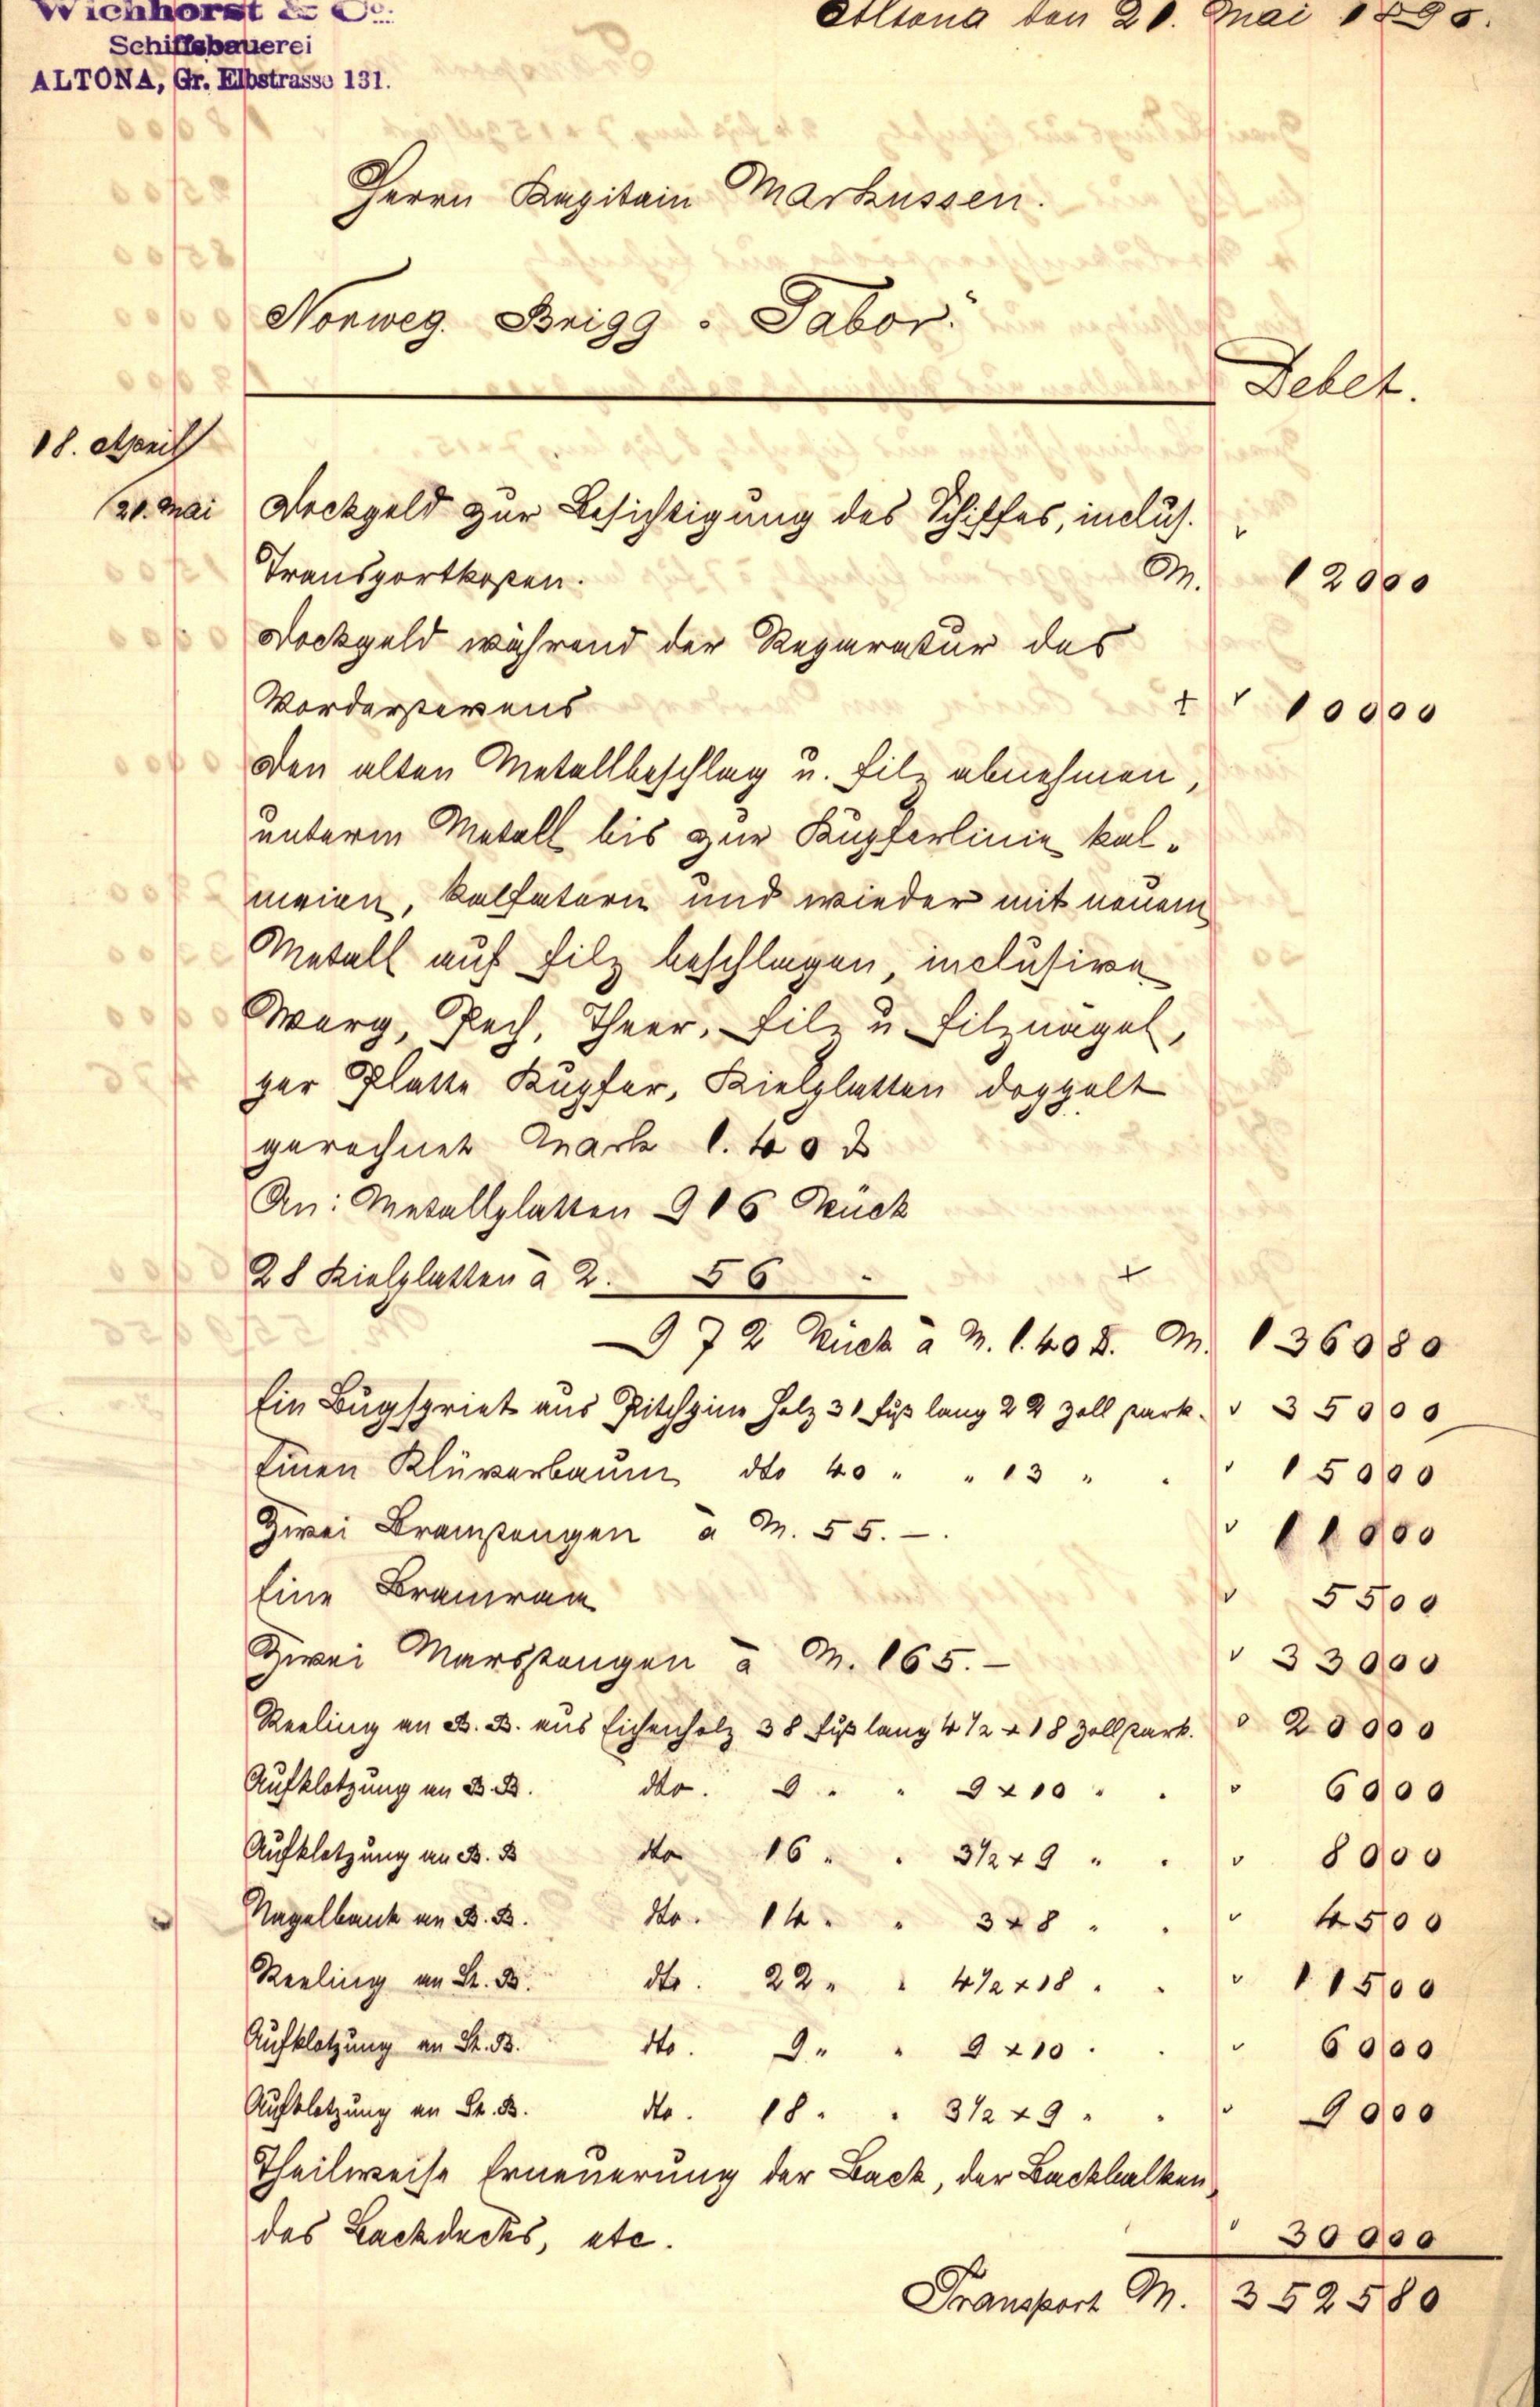 Wichhorst & Co.
Schiffsbauerei
ALTONA, Gr. Elbstrasse 131.
Altona den 21. Mai 1895.
Herrn Kapitain Markussen.
Norweg. Brigg "Tabor."
Debet.
18. April
/21. Mai Dockgeld zur Besichtigung des Schiffes, inclus.
Transportkosten. M. 120 00
Dockgeld während der Reparatur des
Vorderstevens + " 100 00
Den alten Metallbeschlag u. Filz abnehmen,
unterm Metall bis zur Kupferlinie kal-
meien, kalfatern und wieder mit neuem
Metall auf Filz beschlagen, inclusive
Werg, Pech, Theer, Filz u. Filznägel,
per Platte Kupfer, Kielplatten doppelt
gerechnet Mark 1.40 ₰
An: Metallplatten 916 Stück
28 Kielplatten à 2. 56 " +
972 Stück à M. 1.40 ₰. M. 1360 80
Ein Bugspriet aus Pitchpine Holz 31 Fuß lang 22 Zoll stark. " 350 00
Einen Klüverbaum dto 40 " " 13 " " " 150 00
Zwei Bramstengen à M. 55.—. " 110 00
Eine Bramraa " 55 00
Zwei Marsstengen à M. 165.— " 330 00
Reeling an B. B. aus Eichenholz 38 Fuß lang 4 1/2 x 18 Zoll stark. " 200 00
Aufklotzung an B. B. dto. 9 " " 9 x 10 " " " 60 00
Aufklotzung an B. B dto 16 " " 3 1/2 x 9 " " " 80 00
Nagelbank an B. B. dto. 14 " " 3 x 8 " " " 45 00
Reeling an St. B. dto. 22 " " 4 1/2 x 18 " " " 115 00
Aufklotzung an St. B. dto. 9 " " 9 x 10 " " " 60 00
Aufklotzung an St. B. dto. 18 " " 3 1/2 x 9 " " " 90 00
Theilweise Erneuerung der Back, der Backbalken,
des Backdecks, etc. " 300 00
Transport M. 3525 80